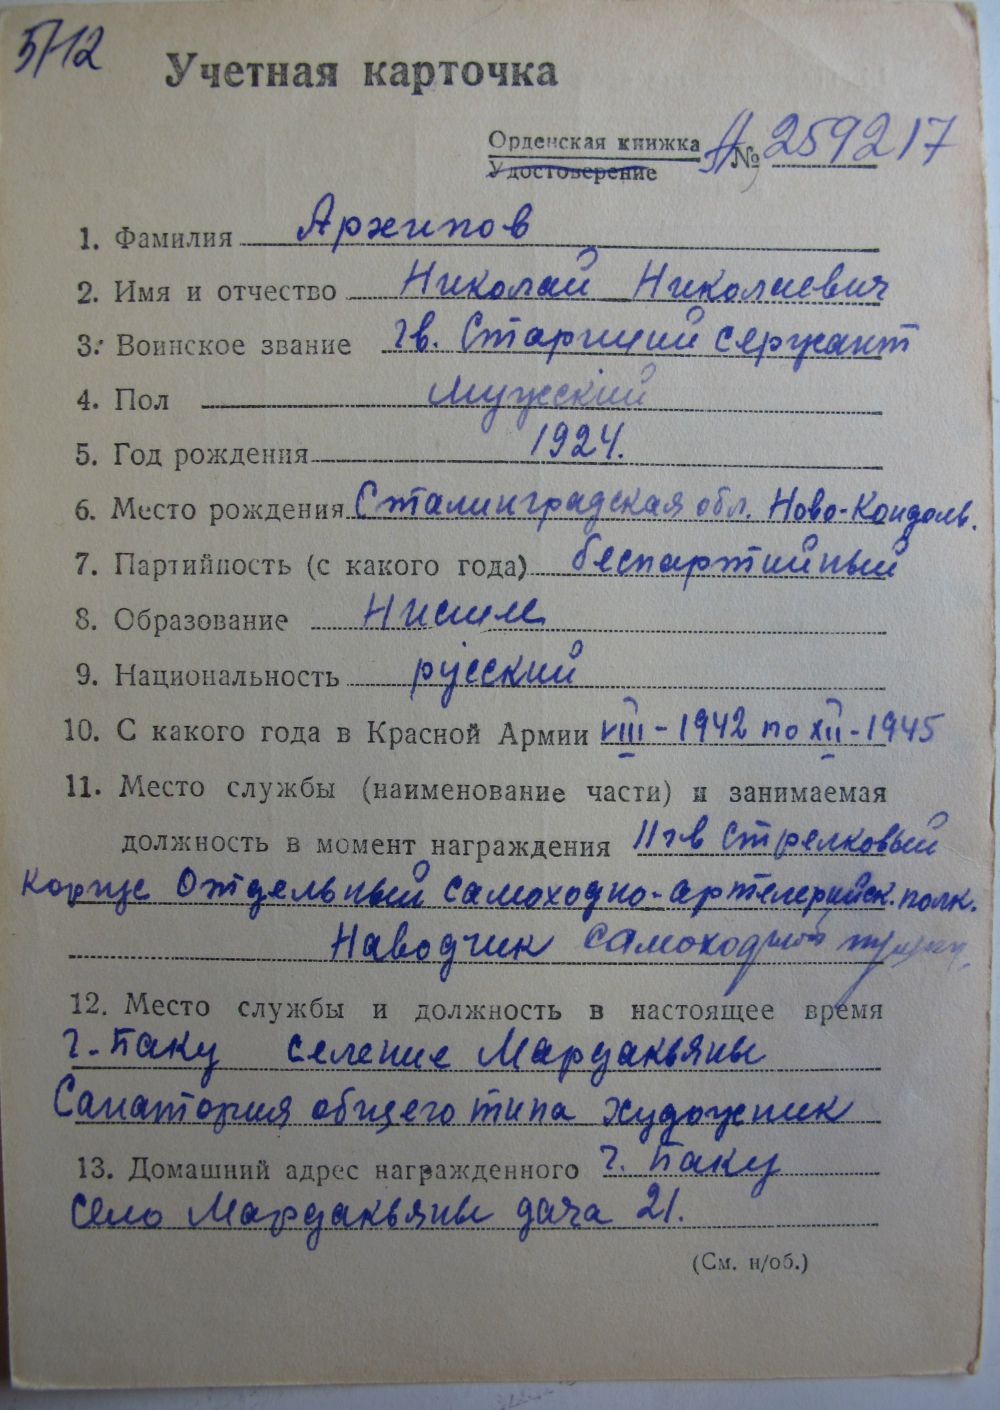 5/12
Учетная карточка
Орденская книжка А № 259217
Удостоверение
1. Фамилия Архипов
2. Имя и отчество Николай Николаевич
3. Воинское звание гв. Старший сержант
4. Пол мужский
5. Год рождения 1924.
6. Место рождения Сталинградская обл. Ново-Кондоль.
7. Партийность (с какого года) беспартийный
8. Образование
9. Национальность русский
10. С какого года в Красной Армии VIII - 1942 по XII - 1945
11. Место службы (наименование части) и занимаемая
должность в момент награждения 11 гв Стрелковый
Корпус Отдельный самоходно-артелерийск. полк.
Наводчик самоходной
12. Место службы и должность в настоящее время
г. Баку селение Мардакьяны
Санатория общего типа художник
13. Домашний адрес награжденного г. Баку
село Мардакьяны дача 21.
(См. н/об.)